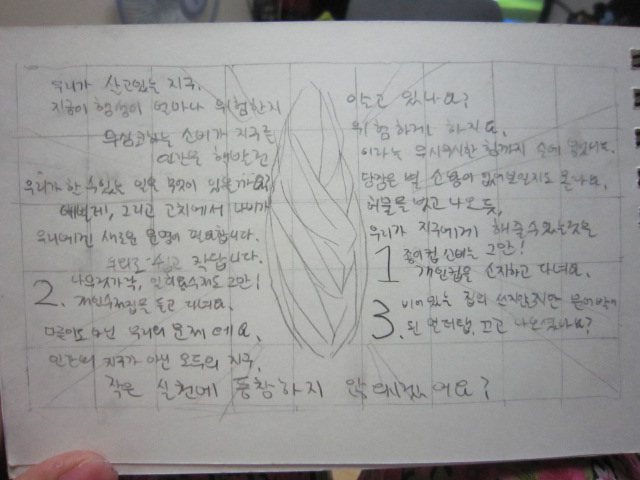 우리가 살고있는 지구,
지금이 행성이 얼마나 위험한지 알고 있나요?
무심코하는 소비가 지구를 위험하게 하지요.
인간은 이라는 무시무시한 힘까지 손에 넣었어요.
우리가 할 수있는 일은 무엇이 있을까요? 당장은 별 소용이 없어보일지도 몰라요.
애벌레, 그리고 고치에서 나비가 허물을 벗고 나오듯,
우리에겐 새로운 문명이 필요합니다. 우리가 지구에게 해줄수있는것은
쉽고 작답니다.
1 종이컵 소비는 그만!
개인컵을 소지하고 다녀요.
2. 나무젓가락, 일회용수저도 그만!
개인수저집을 들고 다녀요.
3. 비어있는 집의 쓰지않지만
된 멀티탭, 끄고 나오셨나요?
아닌 우리의 문제예요.
인간의 지구가 아닌 모두의 지구,
작은 실천에 동참하지 않으시겠어요?